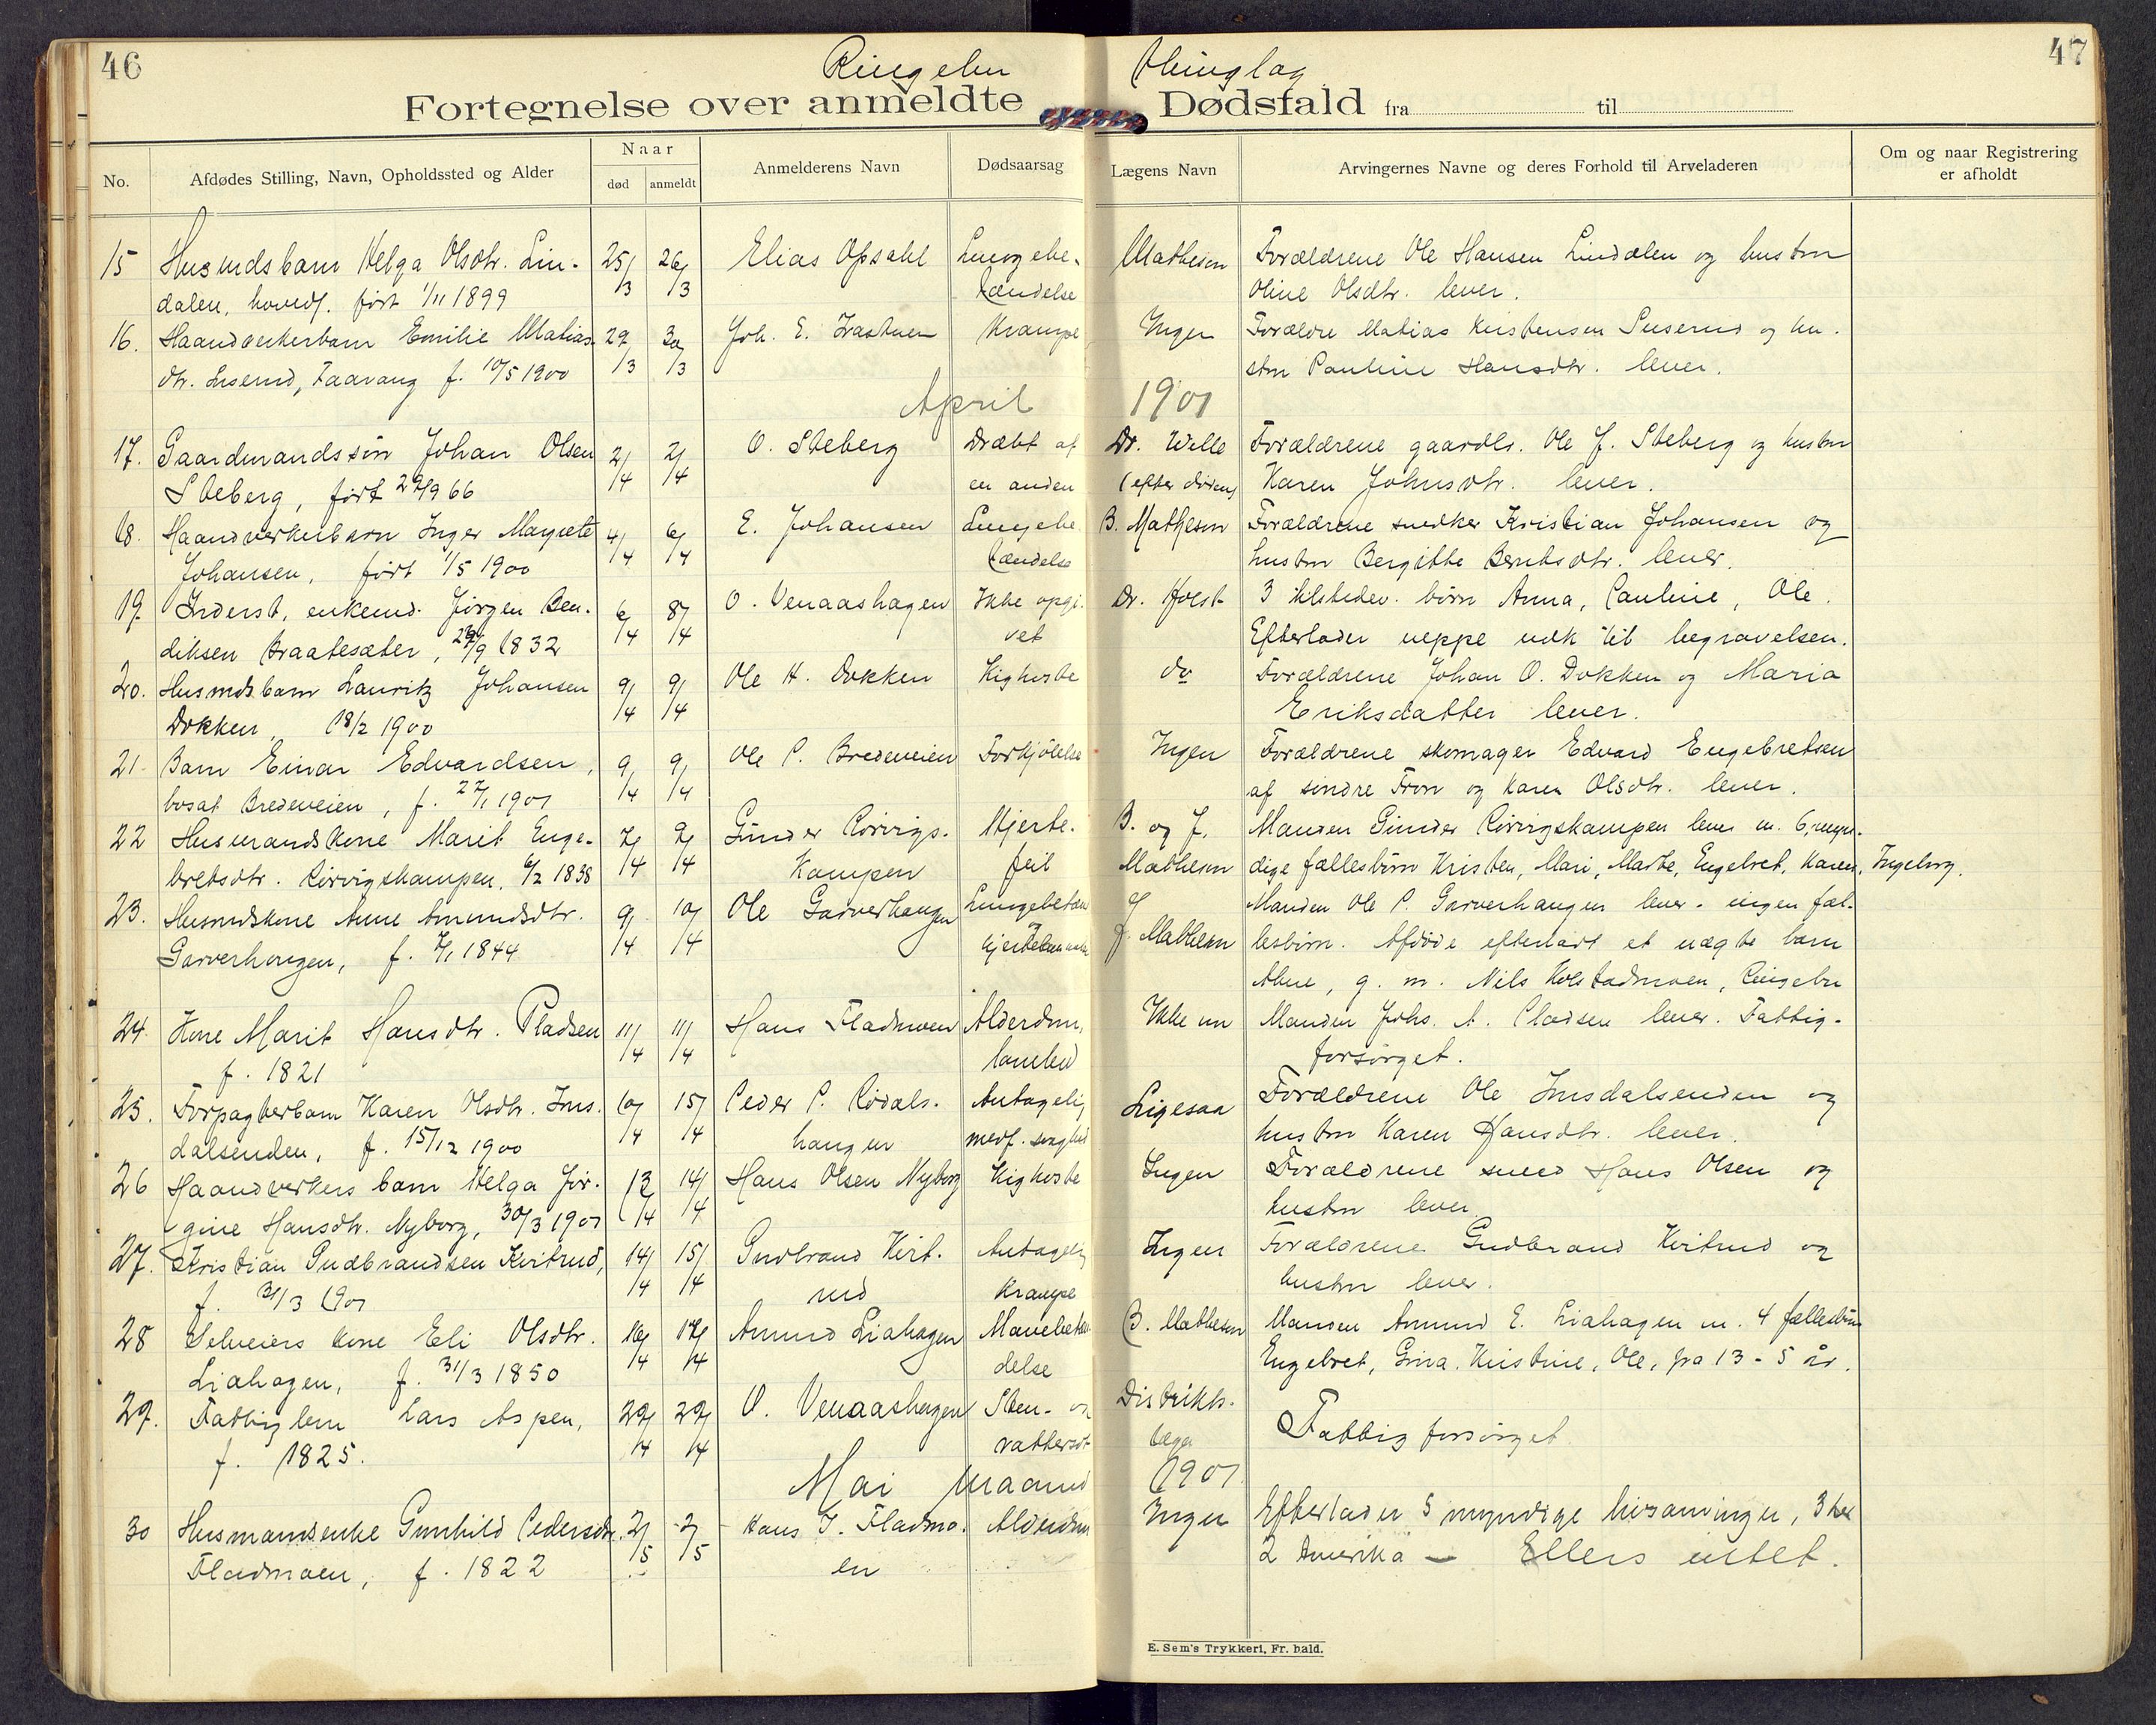 46
Ringebu Thinglag
47
Fortegnelse over anmeldte Dødsfald fra til
No.
Afdødes Stilling, Navn, Opholdssted og Alder
Naar
død
anmeldt
Anmelderens Navn
Dødsaarsag
Lægens Navn
Arvingernes Navne og deres Forhold til Arveladeren
Om og naar Registrering
er afholdt
15 Husmdsbarn Helga Olsdtr. Lin- 25/ 26/ Elias Opsahl Lungebe- Matheson Forældrene Ole Hansen Lindalen og hustru
dalen, hoveds. født 1/11 1899 /3 /3 tændelse Oline Olsdtr. lever.
16. Haandverkerbarn Emilie Matias- 29/ 30/ Joh. E. Krampe Ingen Forældre Matias Kristensen Suserud og hu-
dtr. f. 10/5 1900 /3 /3 stru Pauline Hansdtr. lever.
April 1901
17. Gaardmandssøn Johan Olsen 2/ 2/ O. Steberg Dræbt af Dr. Welle Forældrene gaardbr. Ole J. Steberg og hustru
Steberg, født 29/9 66 /4 /4 en anden (efter døden) Karen Johnsdtr. lever.
18. Haandverkerbarn Inger Margrete 4/ 6/ E. Johansen Lungebe B. Matheson Forældrene snedker Kristian Johansen og
Johansen, født 1/5 1900 /4 /4 tændelse hustru Bergitte Berntsdtr. lever.
19. Inderst, enkemd. Jørgen Ben- 6/ 8/ O. Venaashagen Ikke opgi- Dr. Holst 3 børn Anna, Pauline, Ole.
diksen Braatesæter, 29/9 1832 /4 /4 vet Efterlader neppe nok til begravelsen.
20. Husmdsbarn Lauritz Johansen 9/ 9/ Ole H. Dokken Kighoste do Forældrene Johan O. Dokken og Maria
Dokken, 18/2 1900 /4 /4 Eriksdatter lever.
21. Barn Einar Edvardsen, 9/ 9/ Ole P. Bredeveien Forkjølelse Ingen Forældrene skomager Edvard Engebretsen
bosat Bredeveien, f. 27/1 1901 /4 /4 af søndre Fron og Karen Olsdtr. lever.
22 Husmandskone Marit Enge- 7/ 9/ Gunder Rørvigs- Hjerte- B. og J. Manden Gunder Rørvigskampen lever m. 6 myn-
bretsdtr. Rørvigskampen, 6/2 1838 /4 /4 kampen feil Matheson dige fællesbørn Kristen, Mari, Marte, Engebret, Karen, Ingeborg.
23. Husmdskone Anne Amundsdtr. 9/ 10/ Ole Garverhaugen Lungebetæn Manden Ole P. Garverhaugen lever - ingen fæl-
Garverhaugen, f. 1844 /4 /4 J. Matheson lesbørn. Afdøde efterlart et uægte barn
g. m. Nils Kolstadmoen, Ringebu
24. Kone Marit Hansdtr. Pladsen 11/ 11/ Hans Fladmoen Alderdom, Ikke nn Manden Johs. A. Pladsen lever. Fattig-
f. 1821 /4 /4 lamhed forsørget.
25. Forpagterbarn Karen Olsdtr. Ims- 10/ 15/ Peder P. Rødals- Antagelig Ligesaa Forældrene Ole Imsdalsenden og
dalsenden, f. 15/12 1900 /4 /4 haugen medf. svaghed hustru Karen Hansdtr. lever.
26 Haandverkers barn Helga Jør- 13/ 14/ Hans Olsen Nyborg Kighoste Ingen Forældrene smed Hans Olsen og
gine Hansdtr. Nyborg, 30/3 1901 /4 /4 hustru lever.
27. Kristian Gudbrandsen Kvitrud, 14/ 15/ Gudbrand Kvit- Antagelig Ingen Forældrene Gudbrand Kvitrud og
f. 31/3 1901 /4 /4 rud krampe hustru lever.
28 Selveiers kone Eli Olsdtr. 16/ 17/ Amund Liahagen Mavebetæn B. Matheson Manden Amund E. Liahagen m. 4 fællesbørn
Liahagen, f. 31/3 1850 /4 /4 delse Engebret, Gina, Kristine, Ole, fra 13-5 år.
29. Fattiglem Lars Aspen, 29/ 29/ O. Venaashagen Sten- og Distrikts- Fattigforsørget
f. 1825. /4 /4 vattersot læge
Mai maaned 1901.
30 Husmandsenke Gunhild Pedersdtr. 2/ 2/ Hans J. Fladmo- Alderdom Ingen Efterlader 5 myndige livsarvinger, 3 her
Fladmoen, f. 1822 /5 /5 en 2 Amerika — Ellers intet.
E. Sem's Trykkeri, Fr. hald.